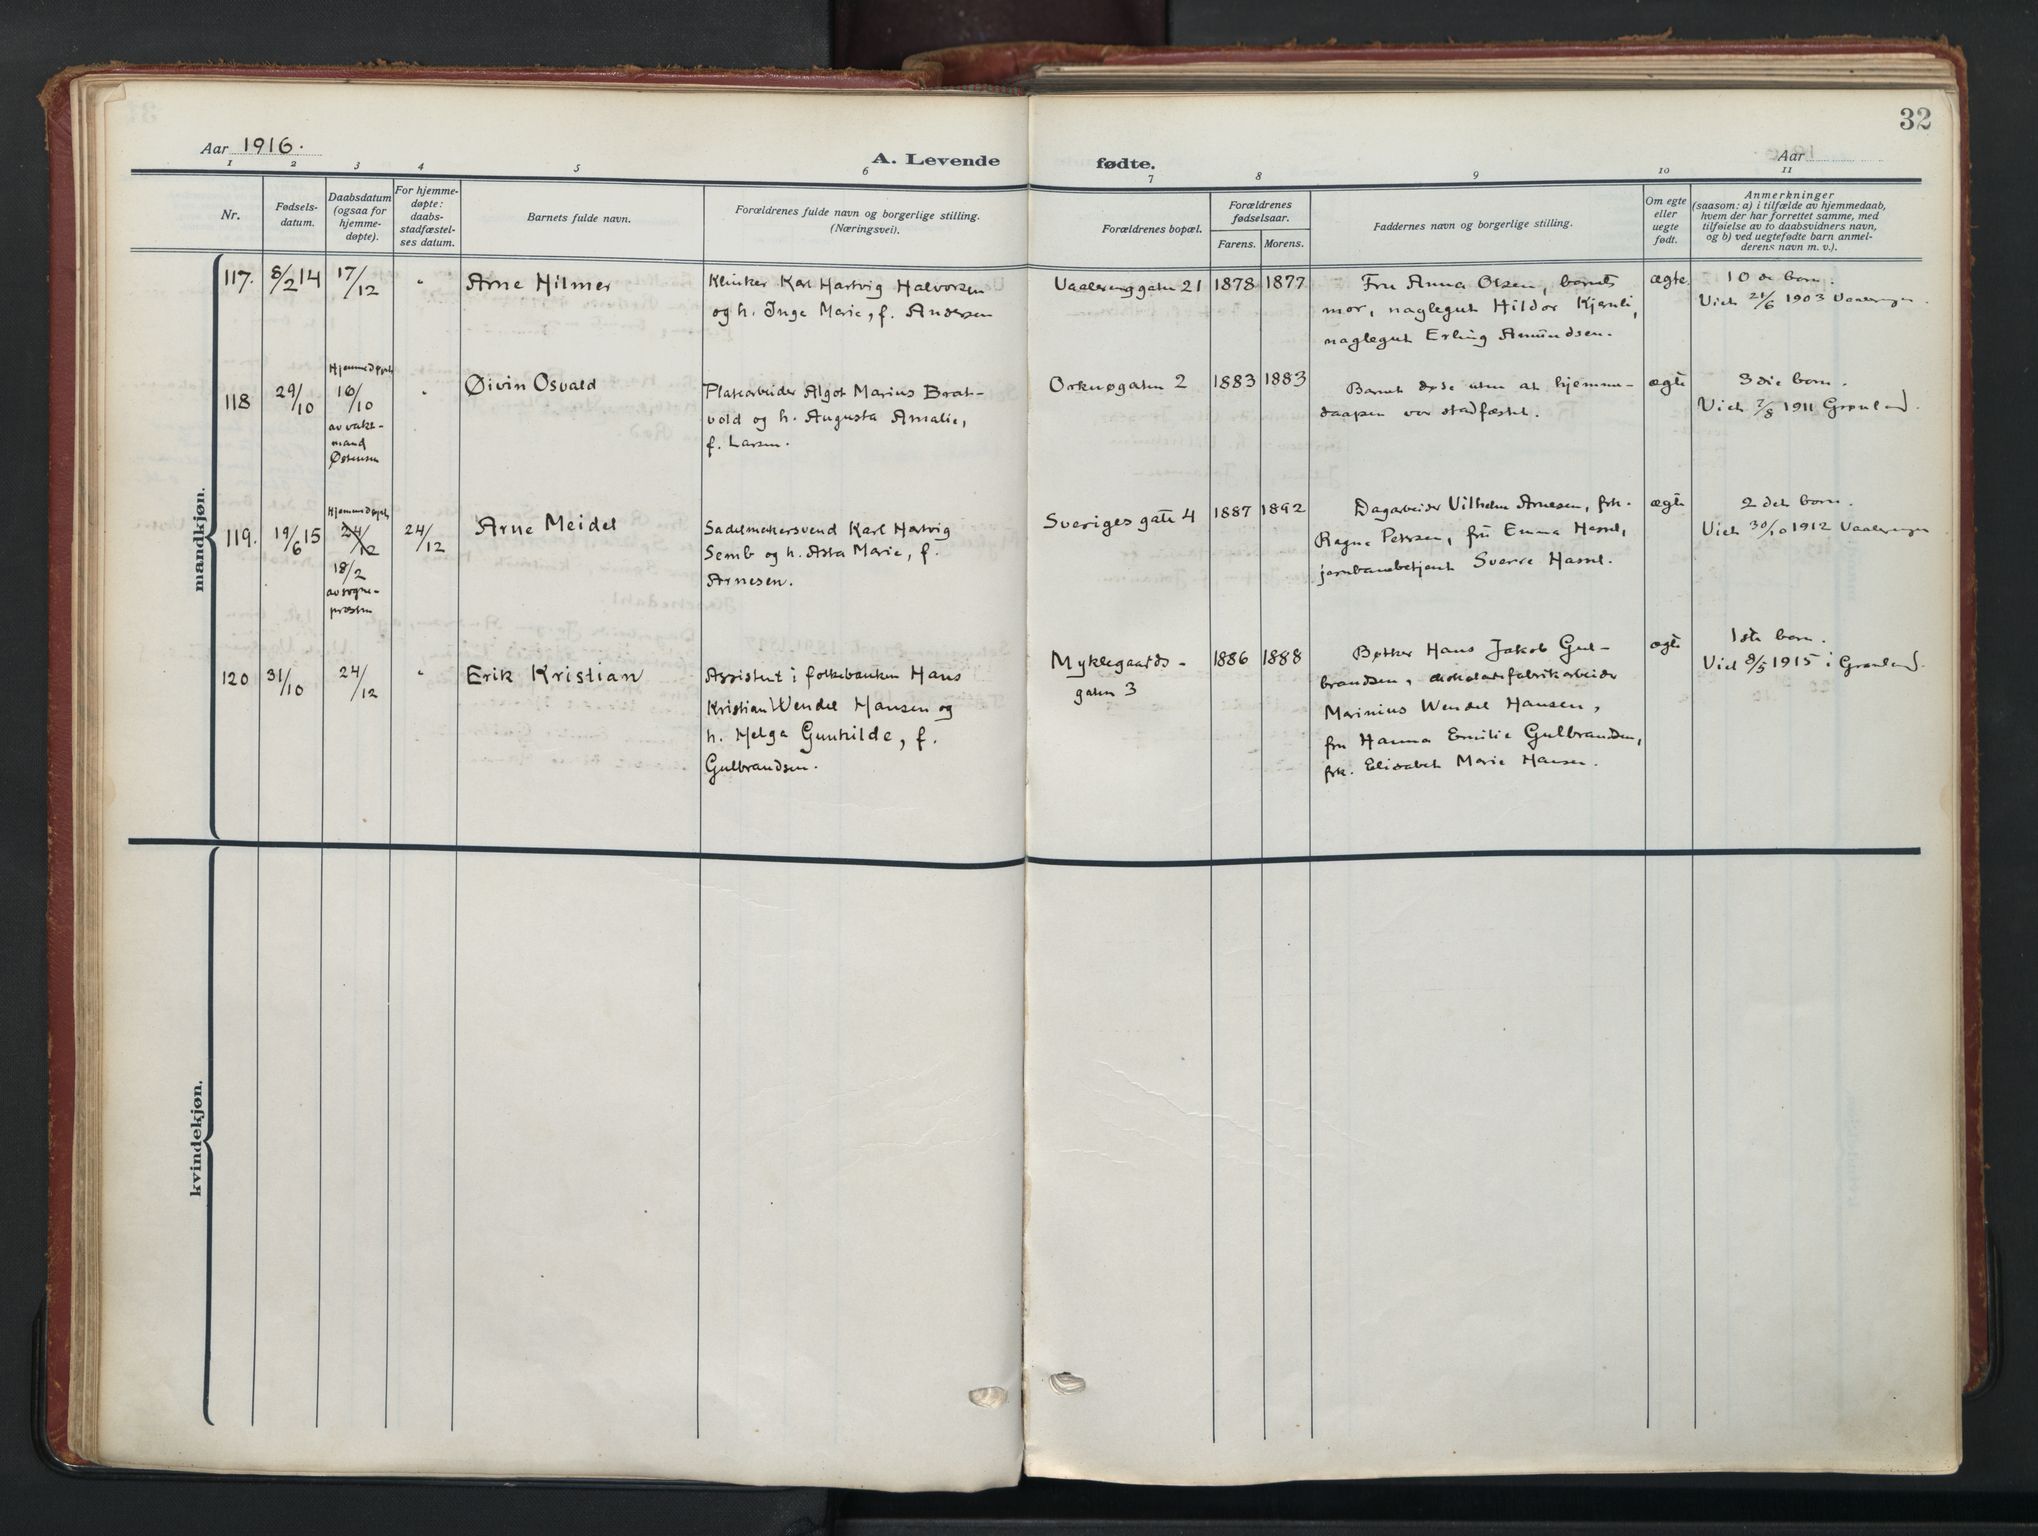 32
Aar 1916.
A. Levende fødte.
Aar
1 2 3 4 5 6 7 8 9 10 11
Nr.
Fødsels-
datum.
Daabsdatum
(ogsaa for
hjemme-
døpte).
For hjemme-
døpte:
daabs-
stadfæstel-
ses datum.
Barnets fulde navn.
Forældrenes fulde navn og borgerlige stilling.
(Næringsvei).
Forældrenes bopæl.
Forældrenes
fødselsaar.
Farens. Morens.
Faddernes navn og borgerlige stilling.
Om egte
eller
uegte
født.
Anmerkninger
(saasom: a) i tilfælde av hjemmedaab,
hvem der har forrettet samme, med
tilføielse av to daabsvidners navn,
og b) ved uegtefødte barn anmel-
derens navn m. v.).
mandkjøn.
117. 8/2 14
17/12
"
Arne Hilmer
Klinker Karl Hartvig Halvorsen
og h. Inga Marie, f. Andersen
Vaalerenggaten 21
1878 1877
Fru Anna Olsen, barnets
mor, naglegut Hildor Kjenli,
naglegut Erling Amundsen.
ægte
10 de barn.
Viet 21/6 1903 Vaalerengen.
118
29/10
Hjemmedøpt
16/10
av vakt-
mand
Østensen
"
Øivin Osvald
Platearbeider Algot Marius Brat-
vold og h. Augusta Amalie,
f. Larsen.
Orknøgaten 2
1883 1883
Barnet døde uten at hjemme-
daapen var stadfæstet.
ægte
3 die barn.
Viet 7/8 1911 Grønland.
119.
19/6 15
Hjemmedøpt
24/12
18/2
av sogne-
presten
24/12
Arne Meidel
Sadelmakersvend Karl Hartvig
Semb og h. Asta Marie, f.
Arnesen.
Sveriges gate 4
1887 1892
Dagarbeider Vilhelm Arnesen, frk.
Ragna Petersen, fru Emma Hassel,
jernbanebetjent Sverre Hassel.
ægte
2 det barn.
Viet 30/10 1912 Vaalerengen
120
31/10
24/12
"
Erik Kristian
Assistent i folkebanken Hans
Kristian Wendel Hansen og
h. Helga Gunhilde, f.
Gulbrandsen.
Myklegaards-
gaten 3
1886 1888
Bøtker Hans Jakob Gul-
brandsen, chokoladefabrikarbeider
Marinius Wendel Hansen,
fru Hanna Emilie Gulbrandsen,
frk. Elisabet Marie Hansen.
ægte
1ste barn.
Viet 8/5 1915 i Grønland.
kvindekjøn.